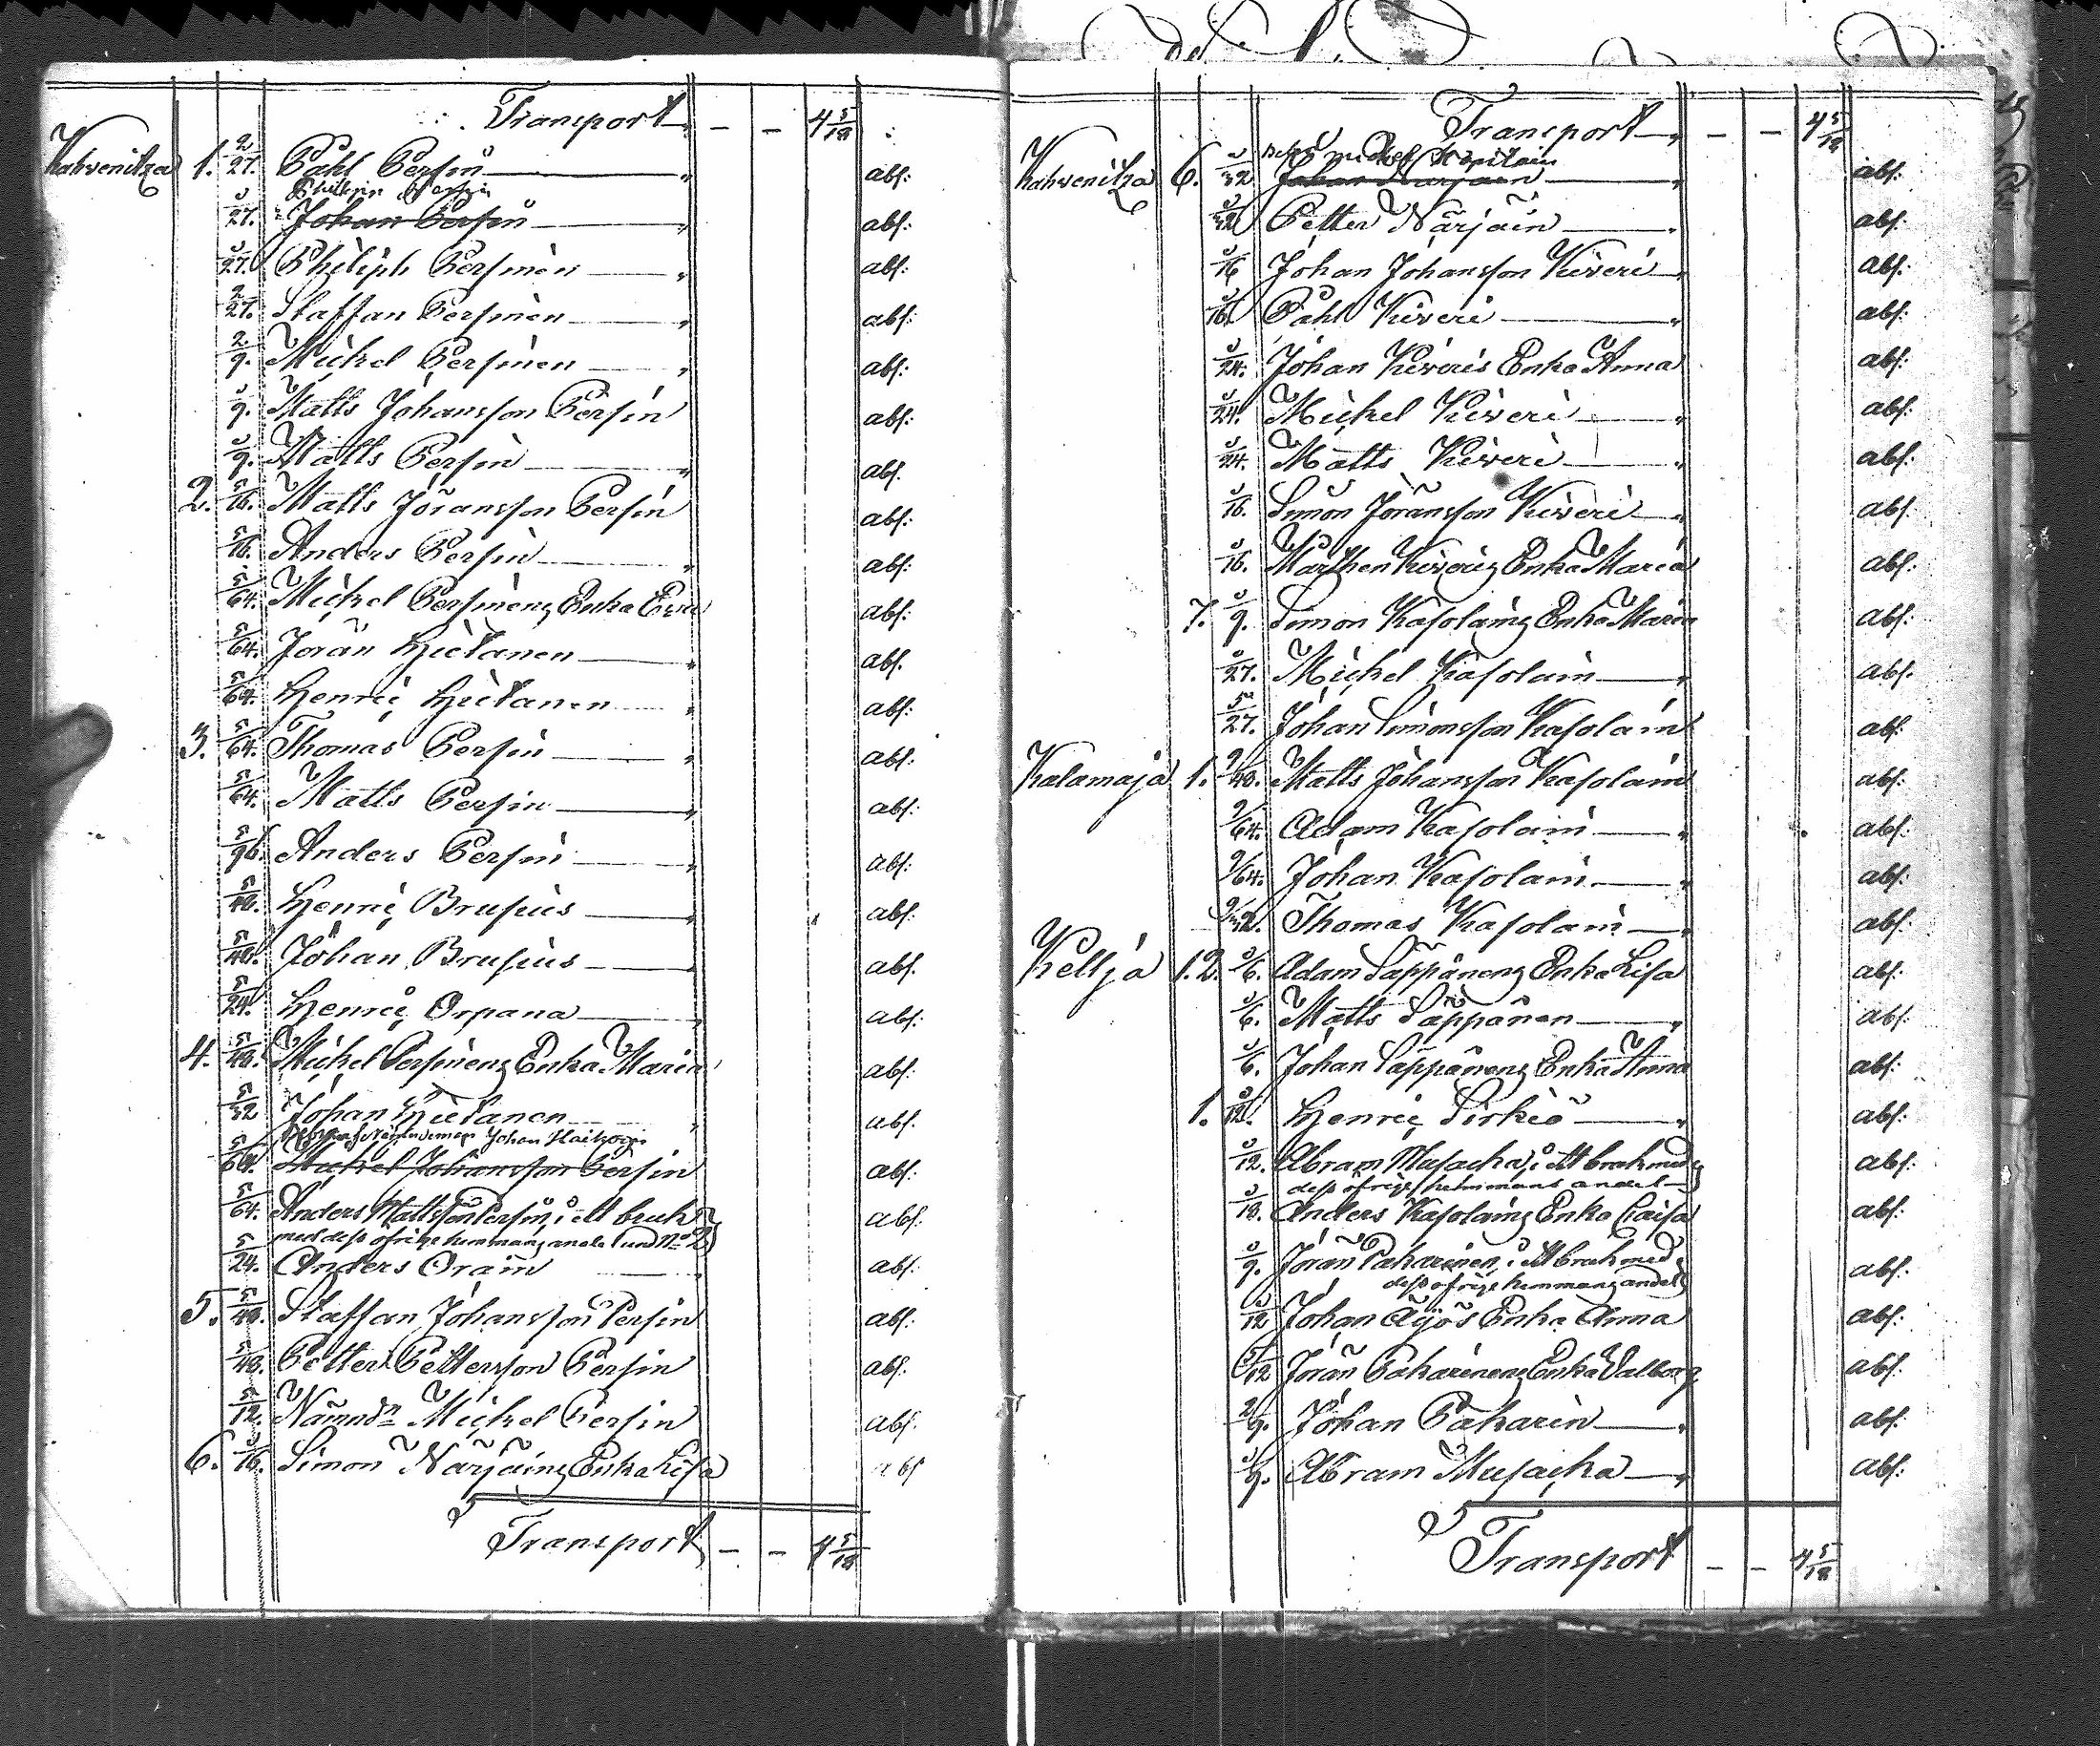 Transport — — 4 5/18
Kahvenitza 1. 2/27. Påhl Persin abs:
Philip Persin
2/27. Johan Persin abs:
2/27. Philiph Persinen abs:
2/27. Staffan Persinen abs:
2/9. Michel Persinen abs:
2/9. Matts Johansson Persin abs:
2/9. Matts Persin abs.
2. 5/16. Matts Jöransson Persin abs:
5/16. Anders Persin abs:
5/64. Michel Persinens Enka Eva abs:
5/64. Jöran Hietanen abs.
5/64. Henric Hietanen abs:
3. 5/64. Thomas Persin abs:
5/64. Matts Persin abs:
5/96. Anders Persin abs:
5/48. Henric Brusius abs:
5/48. Johan Brusius abs.
5/24. Henric Orpana abs:
4. 5/48. Michel Persinens Enka Maria abs:
5/32 Johan Hietanen abs.
Nämndeman Johan
5/64. Michel Johansson Persin abs:
5/64. Anders Mattsson Persin, i ett bruk abs:
med dess öfrige hemmans andel und. No 2
5/24. Anders Orain abs:
5. 5/48. Staffan Johansson Persin abs:
5/48. Petter Pettersson Persin abs:
5/12. Nämndn Michel Persin abs.
6. 5/16. Simon Närjäins Enka Lisa abs
Transport — — 4 5/18
Transport — — 4 5/18
Michel
Kahvenitza 6. 5/32 Johan Närjäin abs:
5/32 Petter Närjäin abs:
5/16 Johan Johansson Kiveri abs:
5/16. Påhl Kiveri abs:
5/24. Johan Kiveris Enka Anna abs:
5/24. Michel Kiveri abs:
5/24. Matts Kiveri abs:
5/16. Simon Jöransson Kiveri abs:
5/16. Mårthen Kiveris Enka Maria abs:
7. 5/9. Simon Kasolains Enka Maria abs:
5/27. Michel Kasolain abs.
5/27. Johan Simonsson Kasolain abs:
Kalamaja 1. 9/48. Matts Johansson Kasolain abs:
9/64. Adam Kasolain abs:
9/64. Johan Kasolain abs:
9/32. Thomas Kasolain abs:
Keltja 1.2. 5/6. Adam Säppänens Enka Lisa abs:
5/6. Matts Säppänen abs:
5/6. Johan Säppänens Enka Anna abs:
1. 5/12. Henric Sirkiö abs:
5/12. Abram Musacka, i ett bruk med abs:
dess öfrige hemmans andel
5/18. Anders Kasolains Enka Caisa abs:
5/9. Jöran Pakarinen, i ett bruk med abs:
dess öfrige hemmans andel
5/12 Johan Äijös Enka Anna abs:
5/12 Jöran Pakarinens Enka Valborg abs:
2/9. Johan Pakarin abs:
5/9. Abram Musacka abs:
Transport — — 4 5/18